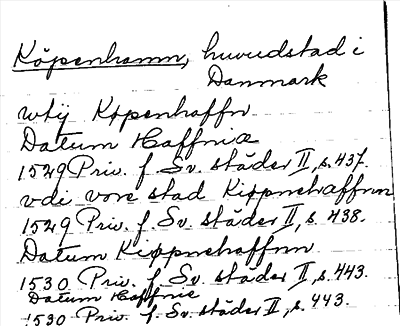 Köpenhamn, huvudstad i
Danmark
wtij Kopenhaffn
Datum Haffniæ
1529 Priv. f. Sv. städer II, s. 437.
vdi vore stad Kippnehaffnn
1529 Priv. f. Sv. städer II, s. 438.
Datum Kippnehaffnn
1530 Priv. f. Sv. städer II, s. 443.
Datum Haffnie
1530 Priv. f. Sv. städer II, s. 443.